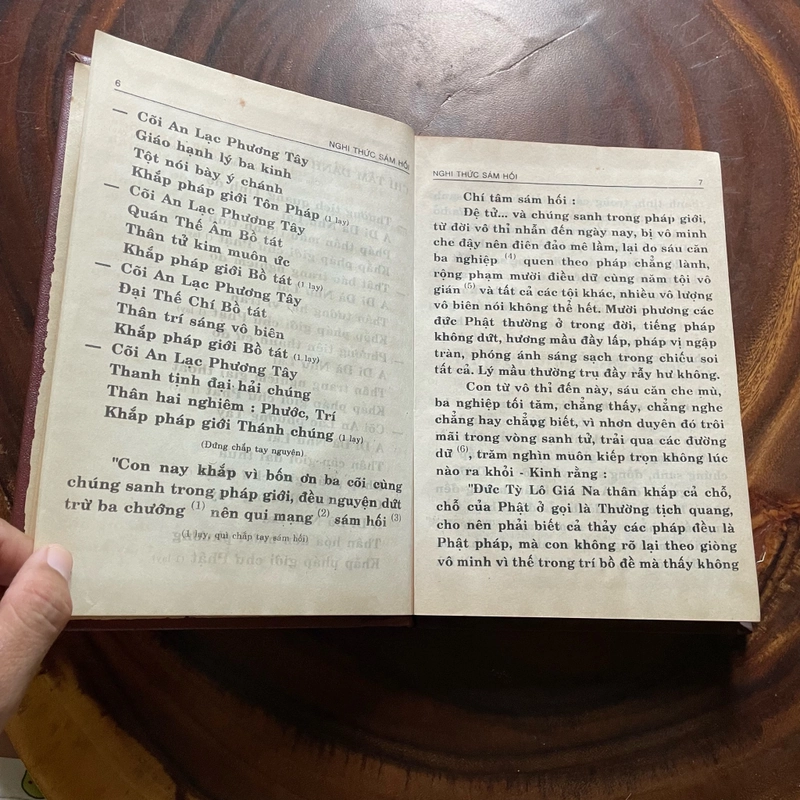 6
NGHI THỨC SÁM HỐI
— Cõi An Lạc Phương Tây
Giáo hạnh lý ba kinh
Tột nói bày ý chánh
Khắp pháp giới Tôn Pháp (1 lạy)
— Cõi An Lạc Phương Tây
Quán Thế Âm Bồ tát
Thân tử kim muôn ức
Khắp pháp giới Bồ tát (1 lạy)
— Cõi An Lạc Phương Tây
Đại Thế Chí Bồ tát
Thân trí sáng vô biên
Khắp pháp giới Bồ tát (1 lạy)
— Cõi An Lạc Phương Tây
Thanh tịnh đại hải chúng
Thân hai nghiêm : Phước, Trí
Khắp pháp giới Thánh chúng (1 lạy)
(Đứng chắp tay nguyện)
"Con nay khắp vì bốn ơn ba cõi cùng
chúng sanh trong pháp giới, đều nguyện dứt
trừ ba chướng (1) nên qui mạng (2) sám hối (3)
(1 lạy, quì chắp tay sám hối)
NGHI THỨC SÁM HỐI
7
Chí tâm sám hối :
Đệ tử... và chúng sanh trong pháp giới,
từ đời vô thỉ nhẫn đến ngày nay, bị vô minh
che đậy nên điên đảo mê lầm, lại do sáu căn
ba nghiệp (4) quen theo pháp chẳng lành,
rộng phạm mười điều dữ cùng năm tội vô
gián (5) và tất cả các tội khác, nhiều vô lượng
vô biên nói không thể hết. Mười phương các
đức Phật thường ở trong đời, tiếng pháp
không dứt, hương mầu đầy lấp, pháp vị ngập
tràn, phóng ánh sáng sạch trong chiếu soi
tất cả. Lý mầu thường trụ đầy rẫy hư không.
Con từ vô thỉ đến này, sáu căn che mù,
ba nghiệp tối tăm, chẳng thấy, chẳng nghe
chẳng hay chẳng biết, vì nhơn duyên đó trôi
mãi trong vòng sanh tử, trải qua các đường
dữ (6), trăm nghìn muôn kiếp trọn không lúc
nào ra khỏi - Kinh rằng :
"Đức Tỳ Lô Giá Na thân khắp cả chỗ,
chỗ của Phật ở gọi là Thường tịch quang,
cho nên phải biết cả thảy các pháp đều là
Phật pháp, mà con không rõ lại theo giòng
vô minh vì thế trong trí bồ đề mà thấy không